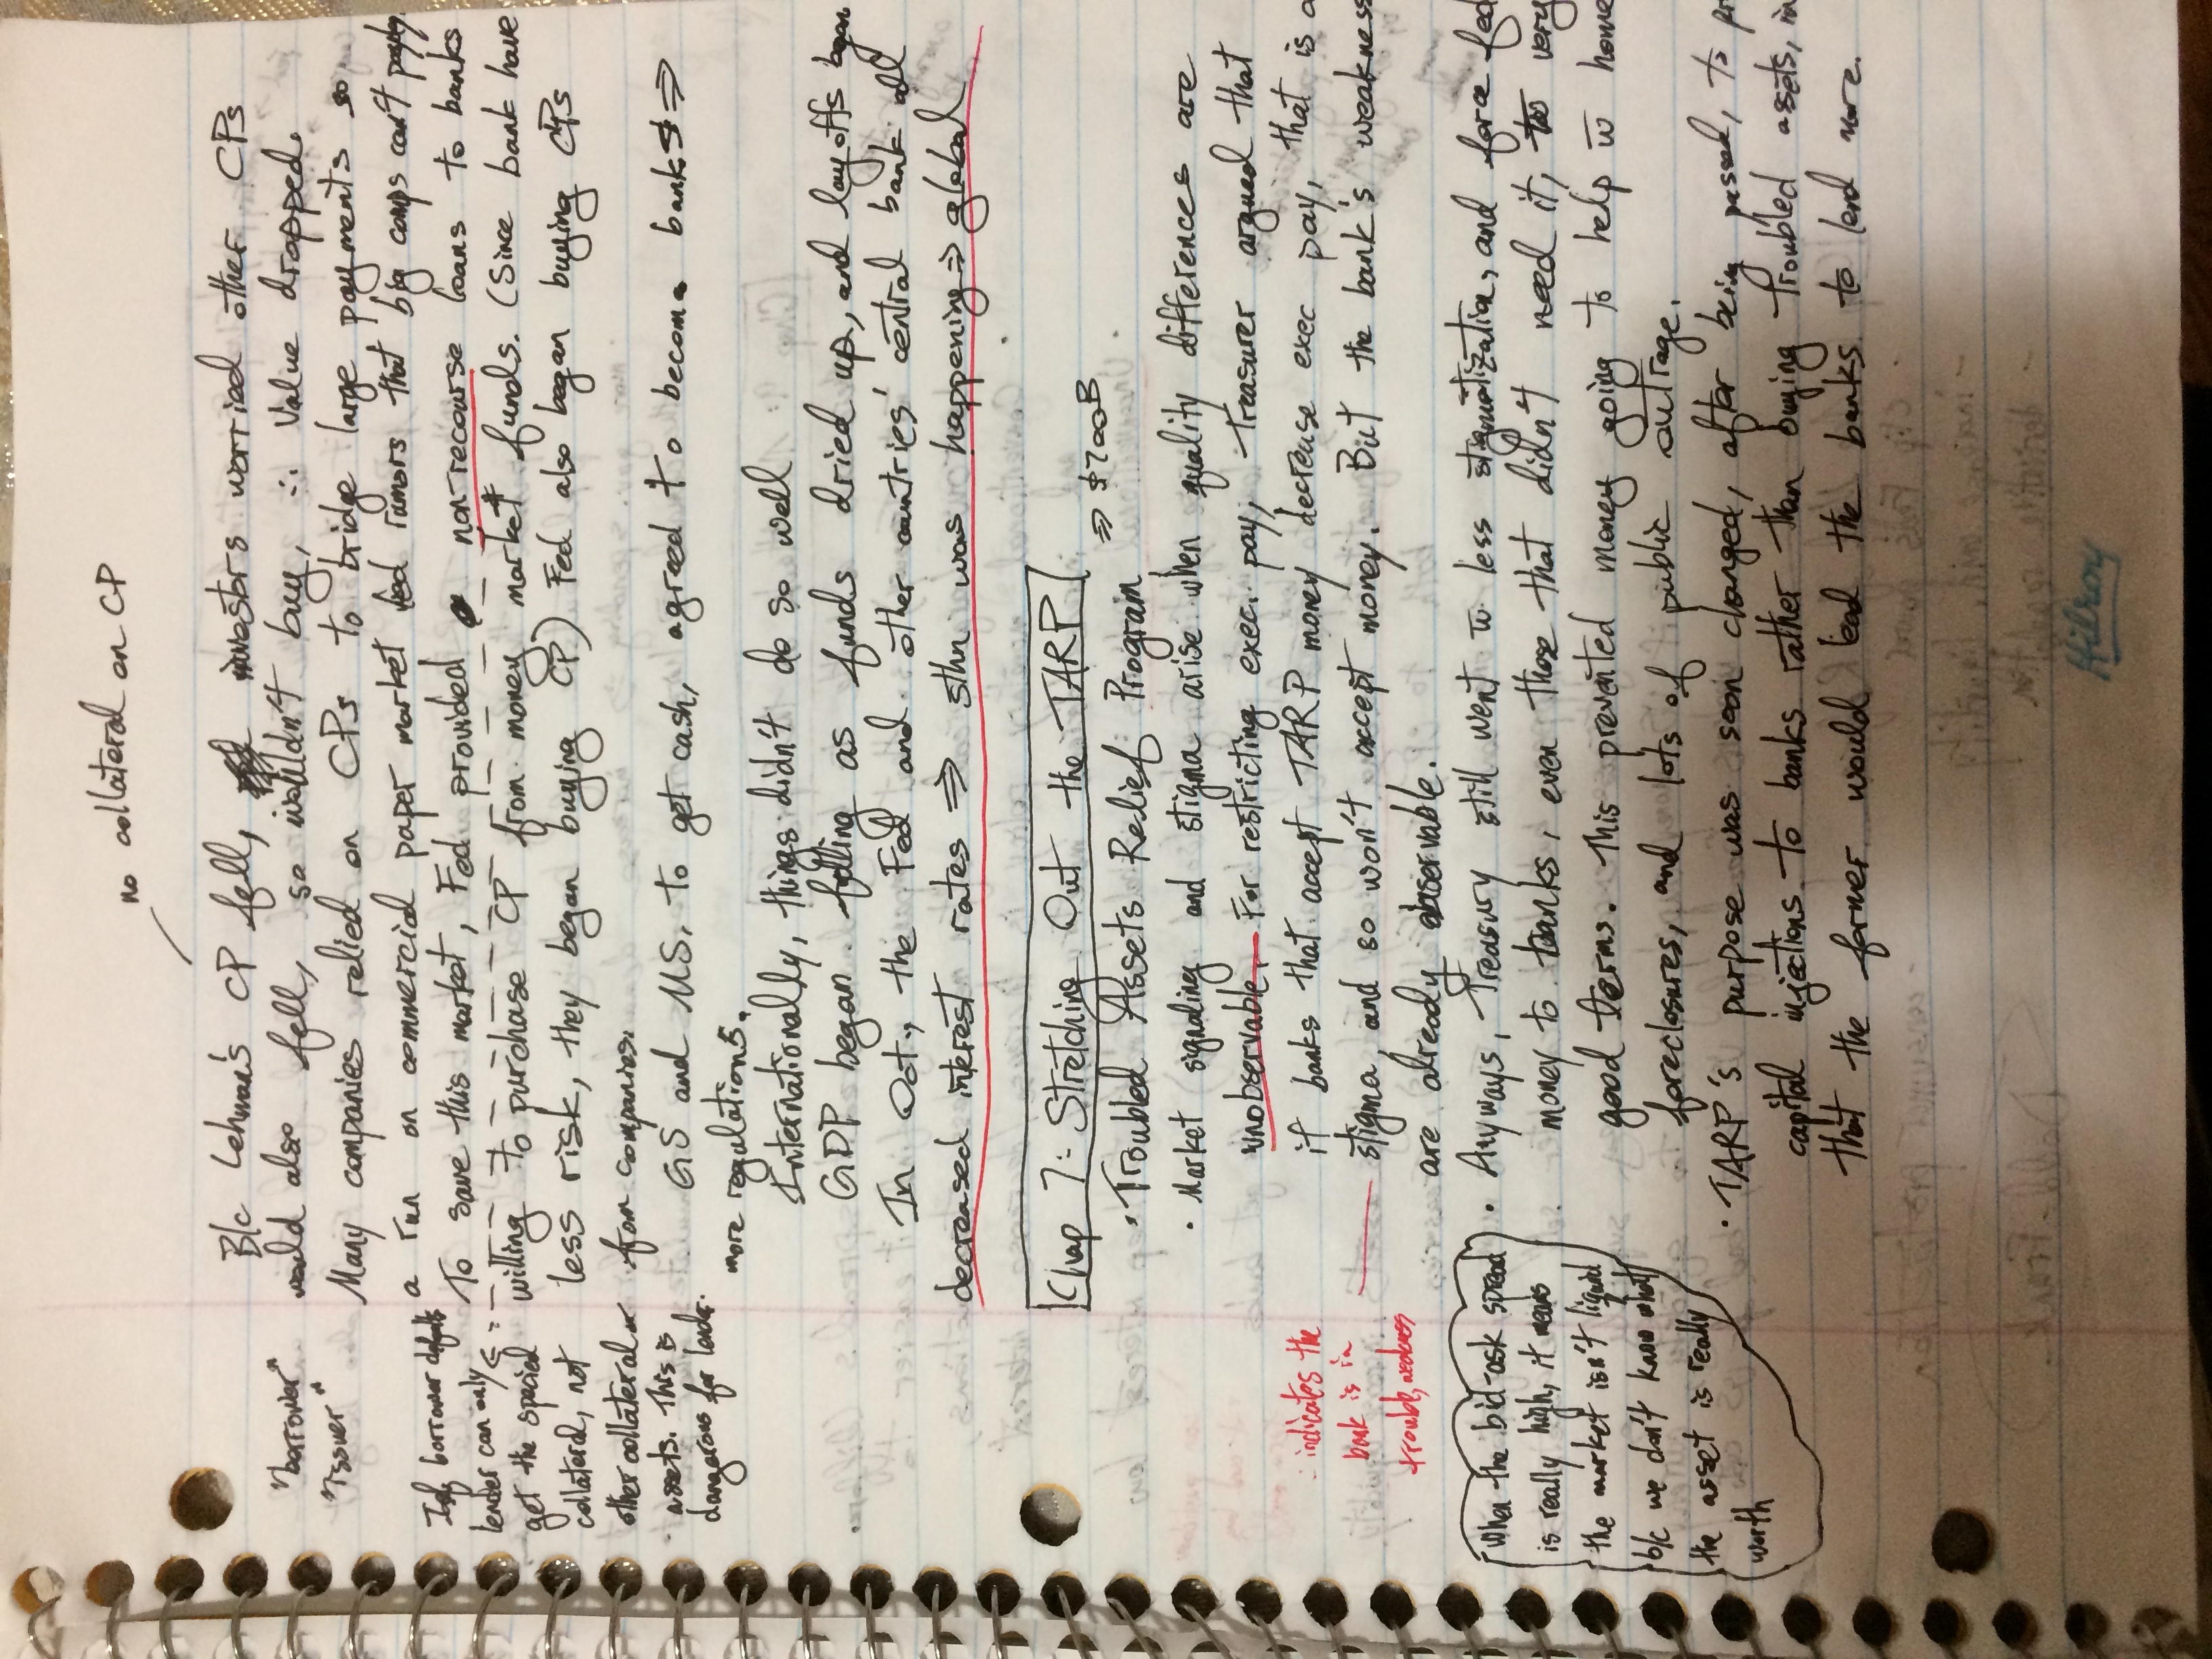 no collateral on CP
B/c Lehman's CP fell, investors worried other CPs
would also fell, so wouldn't buy, ∴ Value dropped.
"borrower"
"issuer"
Many companies relied on CPs to bridge large payments so
a run on commercial paper market fed rumors that big comps can't
To save this market, Fed provided non-recourse loans to banks
willing to purchase CP from money market funds. (Since bank have
less risk, they began buying CP) Fed also began buying CPs
from companies.
If borrower defaults
lender can only
get the specied
collateral, not
other collateral or
assets. This is
dangerous for lender.
GS and MS, to get cash, agreed to become banks ⇒
more regulations.
Internationally, things didn't do so well
GDP began falling as funds dried up, and layoffs began
In Oct., the Fed and other countries' central bank all
decreased interest rates ⇒ sthn was happening ⇒ global
Chap 7: Stretching Out the TARP
• Troubled Assets Relief Program ⇒ $700B
• Market signaling and stigma arise when quality differences are
unobservable. For restricting exec. pay, Treasurer argued that
if banks that accept TARP money decrease exec pay, that is a
stigma, and so won't accept money. But the bank's weakness
are already observable.
indicates the
bank is in
trouble, weakness
• Anyways, Treasury still went w̄ less stigmatization, and force fed
money to banks, even those that didn't need it, very
good terms. This prevented money going to help w̄ home
foreclosures, and lots of public outrage.
When the bid-ask spread
is really high, it means
the market isn't liquid
b/c we don't know what
the asset is really
worth
• TARP's purpose was soon changed, after being passed, to
capital injections to banks rather than buying troubled assets, in
that the former would lead the banks to lend more.
Hilroy